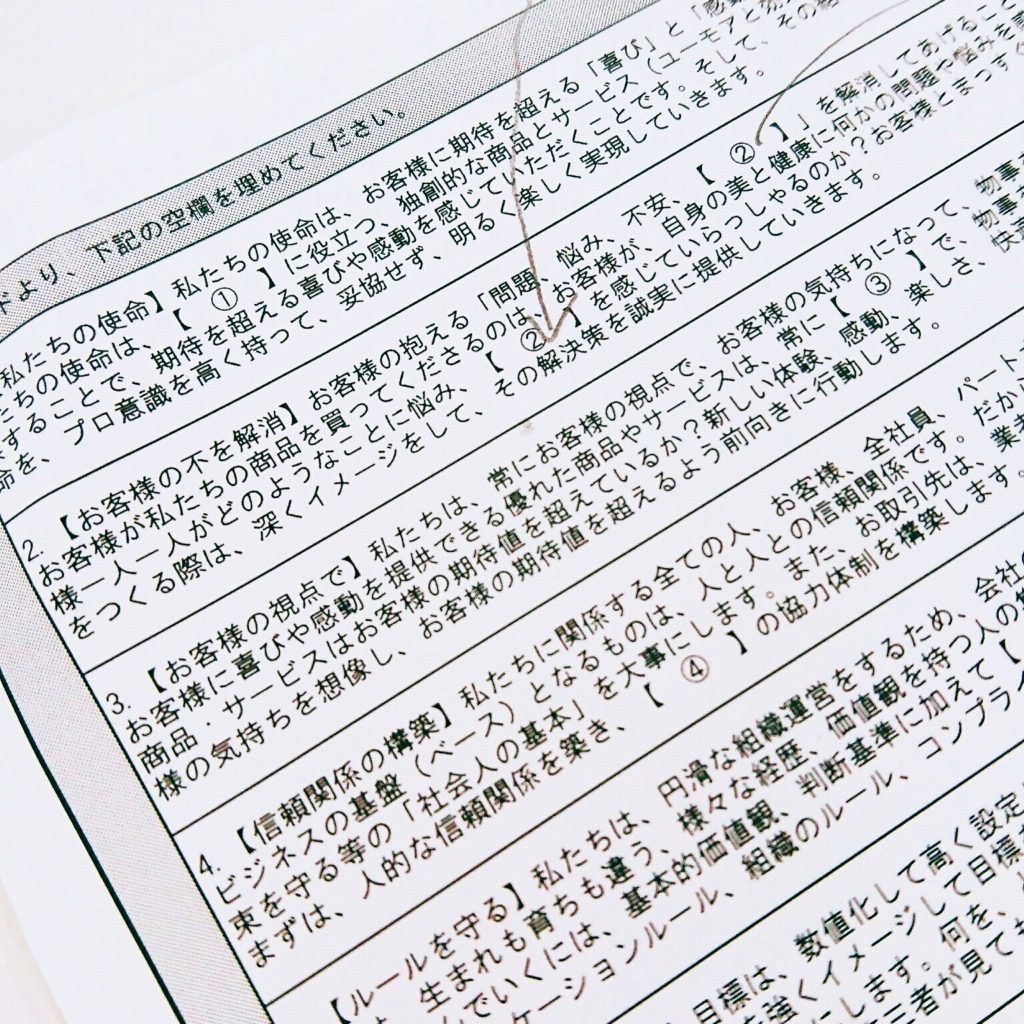 ドより、下記の空欄を埋めてください。
私たちの使命】私たちの使命は、お客様に期待を超える「喜び」と「感動
ちの使命は、【 ① 】に役立つ、独創的な商品とサービス(ユーモアと
することで、期待を超える喜びや感動を感じていただくことです。そして、その
命を、プロ意識を高く持って、妥協せず、明るく楽しく実現していきます。
2.【お客様の不を解消】お客様の抱える「問題、悩み、不安、【 ② 】」を解消してあげること
お客様が私たちの商品を買ってくださるのは、お客様が、自身の美と健康に何かの問題や悩みを
様一人一人がどのようなことに悩み、【 ② 】を感じていらっしゃるのか?お客様とまっすぐ
をつくる際は、深くイメージをして、その解決策を誠実に提供していきます。
3.【お客様の視点で】私たちは、常にお客様の視点で、お客様の気持ちになって、物事
お客様に喜びや感動を提供できる優れた商品やサービスは、常に【 ③ 】で、物事
商品・サービスはお客様の期待値を超えているか?新しい体験、感動、楽しさ、快適
様の気持ちを想像し、お客様の期待値を超えるよう前向きに行動します。
4.【信頼関係の構築】私たちに関係する全ての人、お客様、全社員、パート
ビジネスの基盤(ベース)となるものは、人と人との信頼関係です。だから
束を守る等の「社会人の基本」を大事にします。また、お取引先は、業者
まずは、人的な信頼関係を築き、【 ④ 】の協力体制を構築します。
【ルールを守る】私たちは、円滑な組織運営をするため、会社の
生まれも育ちも違う、様々な経歴、価値観を持つ人の
でいくには、基本的価値観、判断基準に加えて【
ケーションルール、組織のルール、コンプライ
目標は、数値化して高く設定
を強くイメージして目標
にします。何を、
三者が見ても